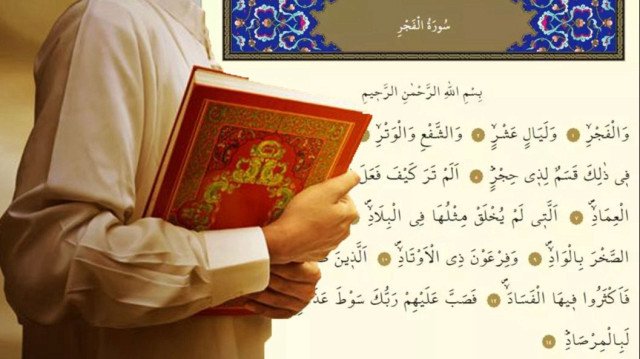 سُورَةُ الْفَجْرِ
بِسْمِ اللّٰهِ الرَّحْمٰنِ الرَّح۪يمِ
وَالْفَجْرِۙ ١ وَلَيَالٍ عَشْرٍۙ ٢ وَالشَّفْعِ وَالْوَتْرِۙ
ف۪ي ذٰلِكَ قَسَمٌ لِذ۪ي حِجْرٍۜ ٥ اَلَمْ تَرَ كَيْفَ فَعَلَ
الْعِمَادِۙ ٧ اَلَّت۪ي لَمْ يُخْلَقْ مِثْلُهَا فِي الْبِلَادِۙ
الصَّخْرَ بِالْوَادِۙ ٩ وَفِرْعَوْنَ ذِي الْاَوْتَادِۙ ١٠ اَلَّذ۪ينَ
فَاَكْثَرُوا ف۪يهَا الْفَسَادَۙ ١٢ فَصَبَّ عَلَيْهِمْ رَبُّكَ سَوْطَ
لَبِالْمِرْصَادِۜ ١٤